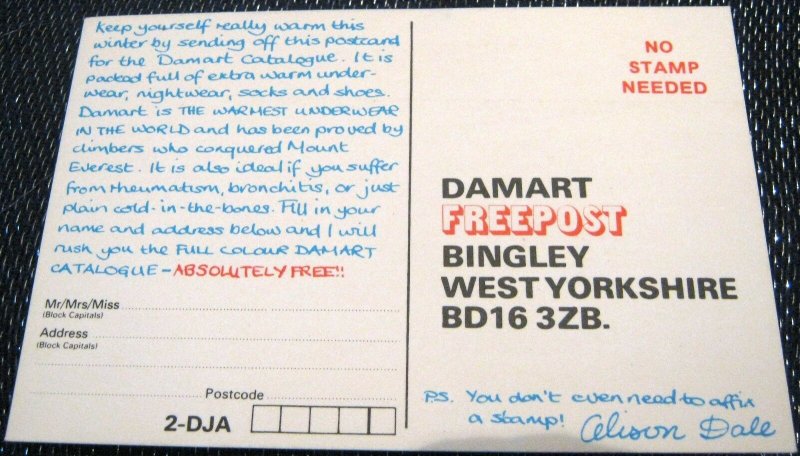 Keep yourself really warm this
winter by sending off this postcard
for the Damart Catalogue. It is
packed full of extra warm under-
wear, nightwear, socks and shoes.
Damart is THE WARMEST UNDERWEAR
IN THE WORLD and has been proved by
climbers who conquered Mount
Everest. It is also ideal if you suffer
from rheumatism, bronchitis, or just
plain cold-in-the-bones. Fill in your
name and address below and I will
rush you the FULL COLOUR DAMART
CATALOGUE - ABSOLUTELY FREE!!
Mr/Mrs/Miss
(Block Capitals)
Address
(Block Capitals)
Postcode
2-DJA
NO
STAMP
NEEDED
DAMART
FREEPOST
BINGLEY
WEST YORKSHIRE
BD16 3ZB.
P.S. You don't even need to affix
a stamp! Alison Dale